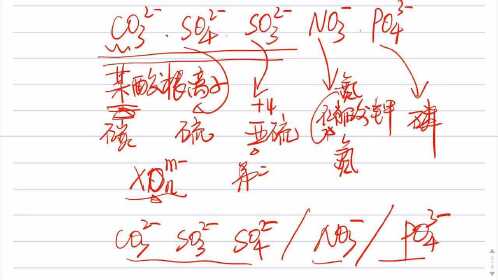 CO₃²⁻ . SO₄²⁻ . SO₃²⁻ NO₃⁻ . PO₄³⁻
某酸根离子 +4 氮
碳 硫 亚硫 酸钾 磷
氮
XOₙᵐ⁻
CO₃²⁻ SO₃²⁻ SO₄²⁻ / NO₃⁻ / PO₄³⁻